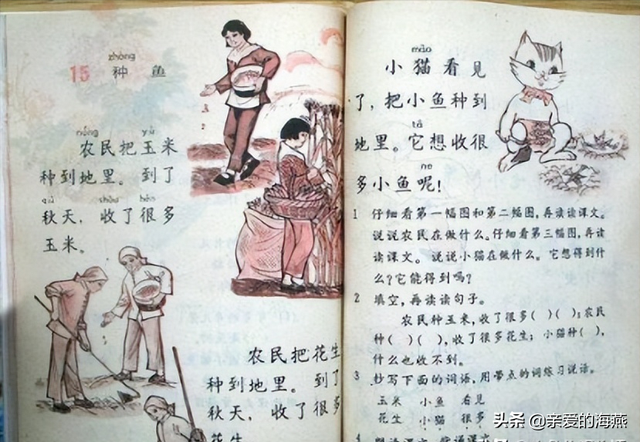 zhòng
15 种 鱼
nóng yù
农民把玉米
种到地里。到了
qiū shōu hěn
秋天，收了很多
玉米。
农民把花生
种到地里。到了
秋天，收了很多
花生
māo
小猫看见
了，把小鱼种到
tā
地里。它想收很
ne
多小鱼呢！
1 仔细看第一幅图和第二幅图，再读读课文。
说说农民在做什么。仔细看第三幅图，再读
读课文。说说小猫在做什么。它想得到什
么？它能得到吗？
2 填空，再读读句子。
农民种玉米，收了很多( )( )；农民
种( )( )，收了很多花生；小猫种( )，
什么也收不到。
3 抄写下面的词语，用带点的词练习说话。
玉米 小鱼 看见
花生 小猫 很多
4
头条 @亲爱的海燕